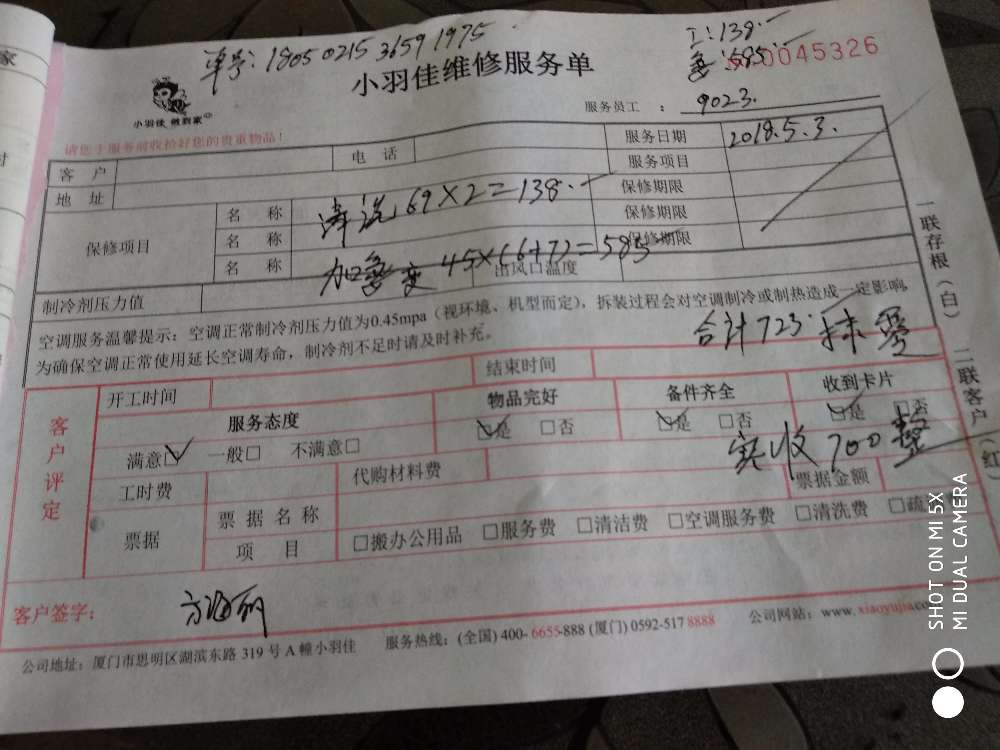 单号：18050215 36591975
工：138.—
氟：585.—
0045326
小羽佳维修服务单
小羽佳 做到家
服务员工 ： 9023.
请您于服务前收拾好您的贵重物品！
客 户 电 话 服务日期 2018.5.3.
地 址 服务项目
保修项目 名 称 清洗 69×2=138.— 保修期限
名 称 保修期限
名 称 加氟 45×(6+7)=585 保修期限
制冷剂压力值 出风口温度
空调服务温馨提示：空调正常制冷剂压力值为0.45mpa（视环境、机型而定），拆装过程会对空调制冷或制热造成一定影响，
为确保空调正常使用延长空调寿命，制冷剂不足时请及时补充。
合计723.— 抹零
客户评定
开工时间 结束时间
服务态度 物品完好 备件齐全 收到卡片
满意☑ 一般□ 不满意□ ☑是 □否 ☑是 □否 ☑是 □否
实收 700 整
工时费 代购材料费 票据金额
票据 票 据 名 称
项 目 □搬办公用品 □服务费 □清洁费 □空调服务费 □清洗费 □疏
客户签字：
公司地址：厦门市思明区湖滨东路 319 号 A 幢小羽佳 服务热线：(全国) 400-6655-888 (厦门) 0592-517 8888 公司网站：www. xiaoyujia.co
一联存根（白） 二联客户（红）
SHOT ON MI 5X
MI DUAL CAMERA